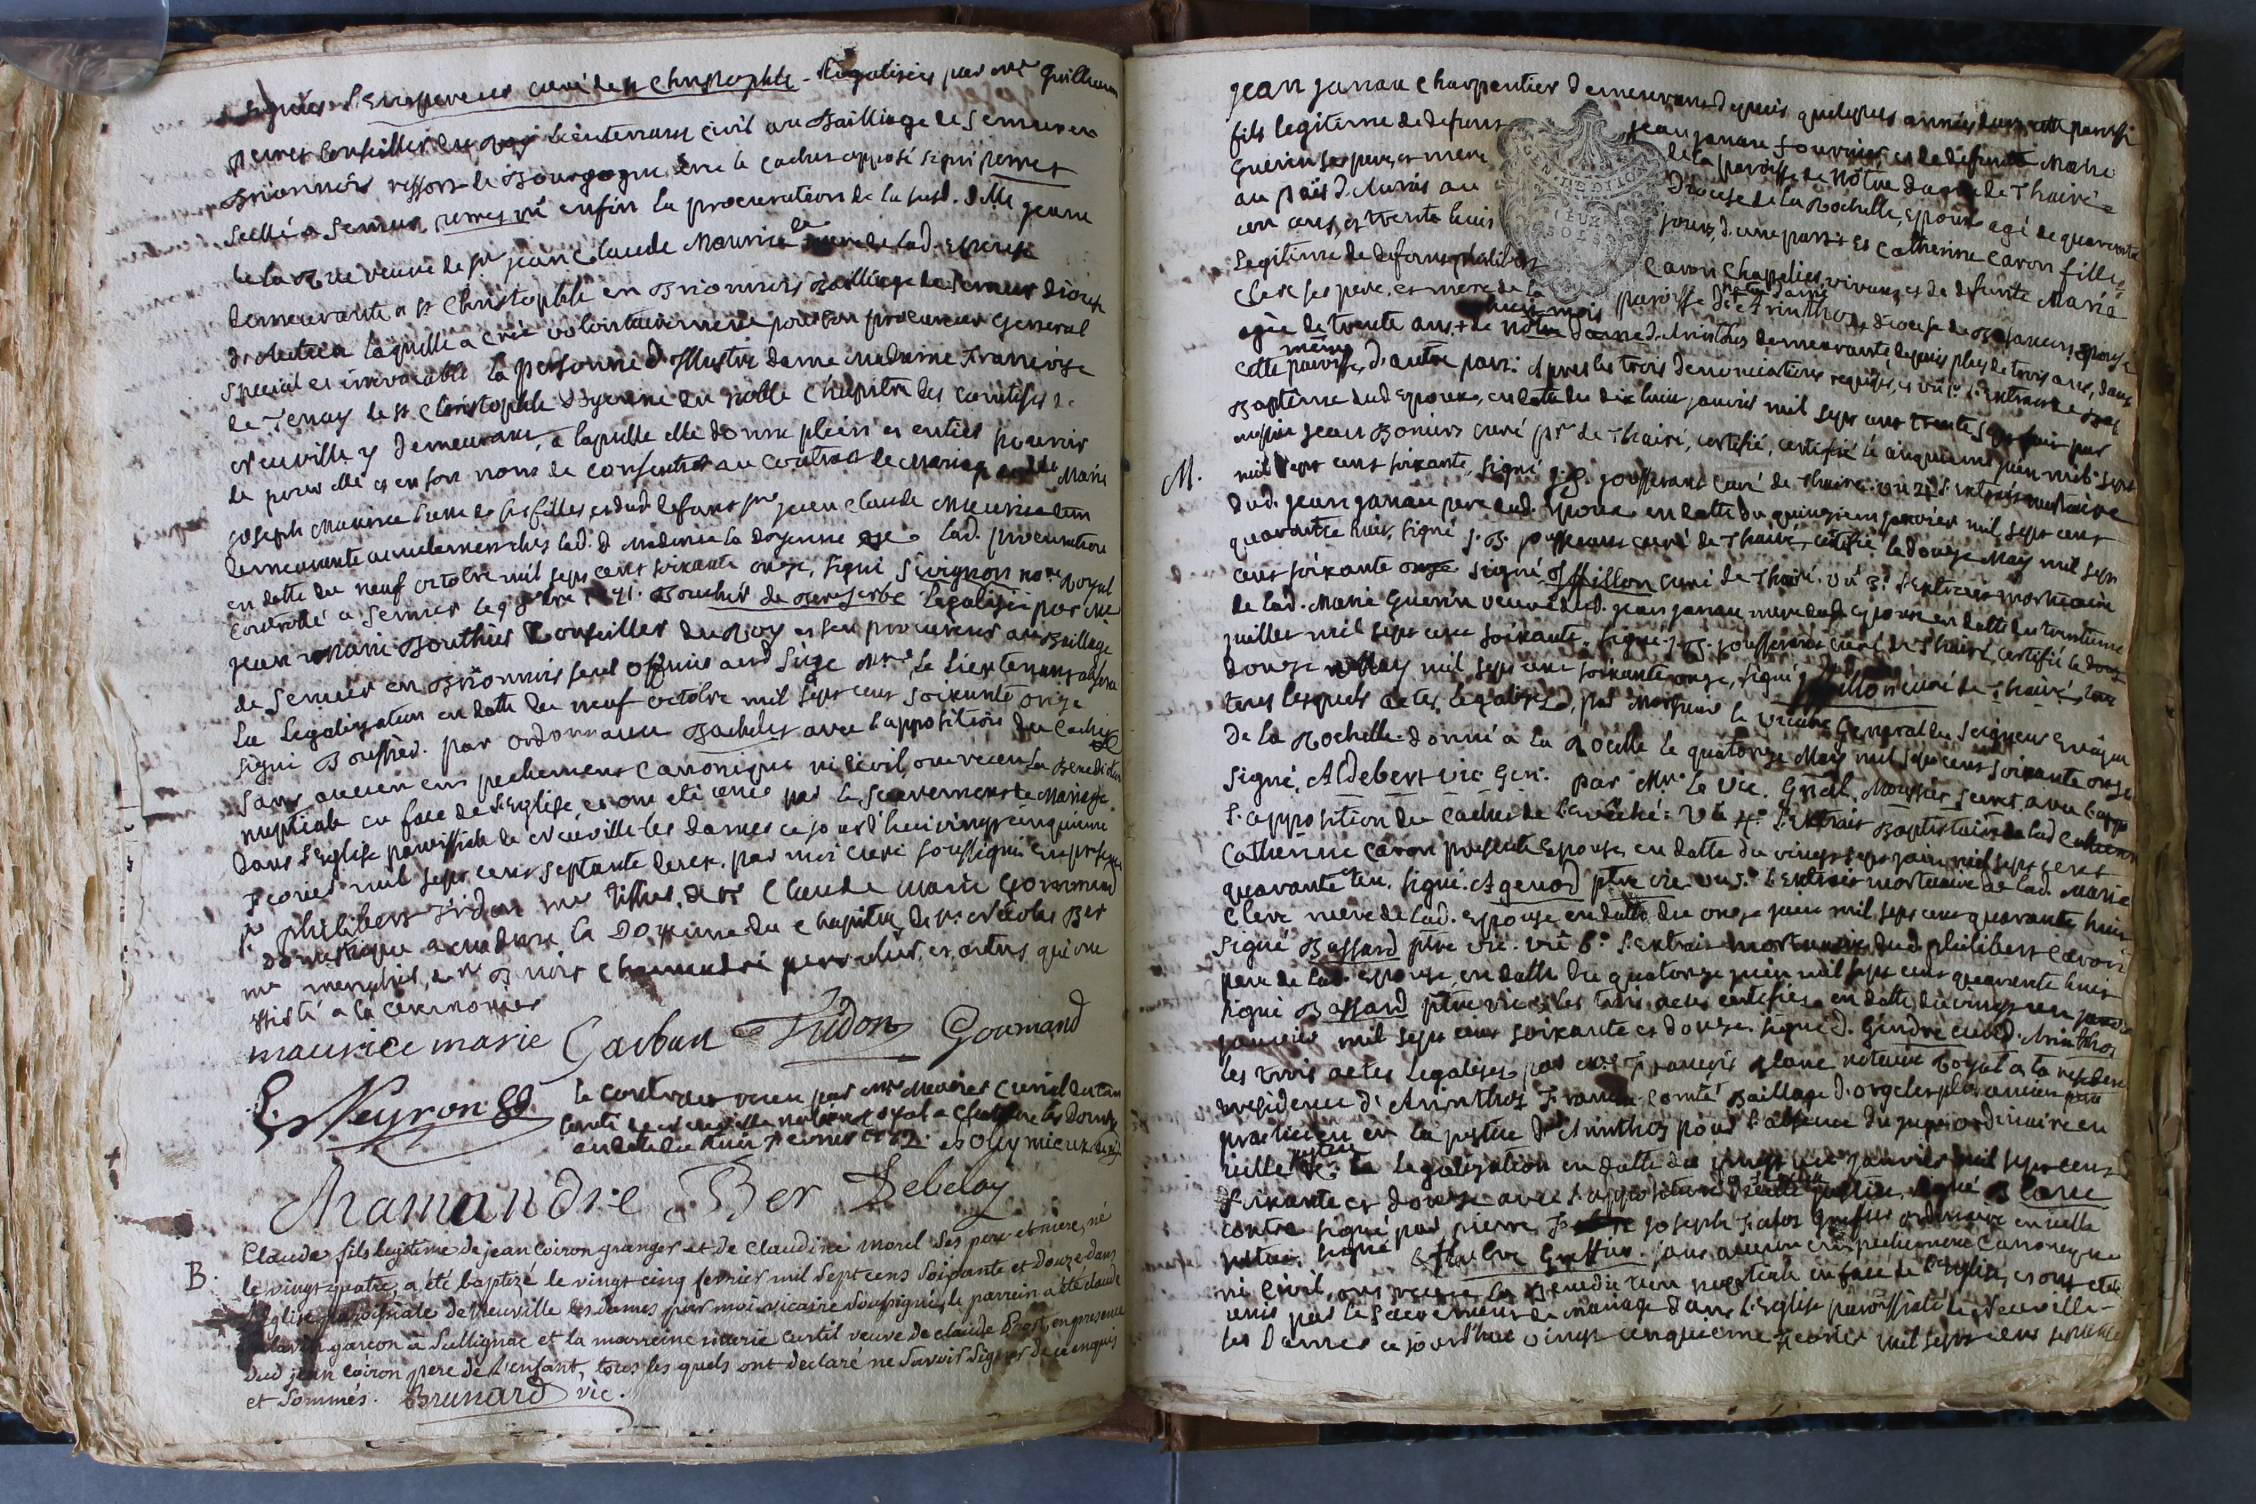 signés Lempereur curé de st Christophle - légalisées par Mre Guillaume
perret Conseiller du Roy Lieutenant Civil au Bailliage de Semur en
Brionnois ressort de Bourgogne, avec le cachet apposé signé perret
scellé a Semur, perret vû enfin la procuration de la susd. dlle jeanne
de la Rue veuve de sr jean Claude Maurice mere de lad. Epouse
demeurante a st Christophle en Brionnois Bailliage de Semur diocese
d'Autun laquelle a créé volontairement pour son procureur General
special et irrevocable la personne d'Illustre dame madame Françoise
de Tenay de st Christophle Doyenne du Noble Chapitre des comtesses de
Neuville y demeurant, a laquelle elle donne plein et entier pouvoir
de pour elle et en son nom de consentir au contrat de Mariage de dlle Marie
joseph Maurice l'une de ses filles, et dud. defunt sr jean Claude Maurice
demeurante actuellement chez lad. d. Madame la doyenne lad. procuration
en datte du neuf octobre mil sept cent soixante onze, signé Sivignon nore Royal
controllé a Semur le 9 8bre 1771. Boucher de légalisée par Me
jean Marie Bouthier Conseiller du Roy et son procureur au Bailliage
de Semur en Brionnois seul officier aud. siege Mr le Lieutenant absent
La Legalisation en datte du neuf octobre mil sept cent soixante onze
signé Bouthier. par ordonnance Bachelet avec l'apposition du Cachet
sans aucun empechement Canonique ni Civil, ont recu la Benediction
nuptiale en face de l'Eglise, et ont eté unis par le sacrement de Mariage
dans l'Eglise paroissiale de Neuville les dames ce jourd'hui vingt cinquieme
fevrier mil sept cent septante deux. par moi curé soussigné en presence
philibert Tridon me Tissier, de sr Claude Marie Gourmand
domestique a madame la Doyenne du Chapitre, de sr Nicolas Ber
me menuisier, de sr B noir Chamandré perruquier, et autres qui ont
assisté a la ceremonie
maurice marie Carban Tridon Gourmand
E. Neyron
le contrat recu par Mre Meunier Curial du
comté de Neuville notaire royal a Chatillon les Dombes
en datte du huit fevrier 1772.
Chamandré Ber Debeloy
B. Claude, fils legitime de jean Coiron granger et de Claudine morel ses pere et mere, né
le vingt quatre, a été baptizé le vingt cinq fevrier mil sept cens soixante et douze dans
l'église paroissiale de Neuville les dames par moi vicaire soussigné, le parrein a été claude
garçon à Sullignac et la marreine marie curtil veuve de claude Prost, en presence
dud jean coiron pere de l'enfant, tous les quels ont declaré ne savoir signer de ce enquis
et sommés. Brunard vic.
jean janau Charpentier demeurant depuis quelques années dans cette paroisse
fils legitime de defunt jean janau fournier, et de defunte Marie
Guerin ses pere, et mere de la paroisse de Nôtre dame de Thairé
au païs d'Aunis au diocese de la Rochelle, Epoux agé de quarante
un ans, et trente huit jours, d'une part et Catherine Caron fille
Legitime de defunt philibert Caron Chapelier, vivant, et de defunte Maria
Clere ses pere, et mere de la paroisse d'Arinthod, diocese de Besançon, Epouse
agée de trente ans, huit mois demeurante, depuis plus de trois ans, dans
cette même paroisse, d'autre part: Apres les trois denonciations requises, et vû 1° l'Extrait de
Baptême dud. Epoux, en datte du dix huit janvier mil sept cent trente, signé par
messire jean Boniers curé pr de Thairé, certifié, certifié le cinquieme juin mil sept
M. mil sept cent soixante, signé j. B. jousserant curé de Thairé. vu 2° l'Extrait mortuaire
dud. jean janau pere dud. Epoux en datte du quinzieme janvier mil sept cent
quarante huit, signé j. B. jousserant curé de Thairé, certifié le douze May mil sept
cent soixante onze signé Offillon curé de Thairé. vû 3° l'Extrait mortuaire
de lad. Marie Guerin veuve dud. jean janau mere dud. Epoux en datte du trentieme
juillet mil sept cent soixante. signé j. B. jousserant curé de Thairé, certifié le douze
douze May mil sept cent soixante onze, signé Offillon curé de Thairé, tous
tous lesquels actes Legalisés, par Monsieur le Vicaire General du Seigneur Evêque
De la Rochelle. donné a la Rochelle le quatorze May mil sept cent soixante onze
signé, Aldebert vic Gen. par Mr le Vic. Gnal. Moussier secret, avec l'appo
l'apposition du Cachet de l'evêché: Vû 4° l'Extrait Baptistaire de lad. Catherine
Catherine Caron presente Epouse, en datte du vingt sept juin mil sept cent
quarante et un. signé. Agenod ptre vic vu 5° l'extrait mortuaire de lad. Marie
Clere mere de lad. Epouse, en datte du onze juin mil sept cent quarante huit
signé Bassard ptre vic. vû 6° l'extrait mortuaire dud. philibert Caron
pere de lad. Epouse, en datte du quatorze juin mil sept cent quarante huit
signé Bassard ptre vic. les trois actes certifiés en datte du vingt un janvier
janvier mil sept cent soixante et douze. signé d. Gindre curé d'Arinthod
les trois actes Legalisés par me François Blanc notaire Royal a la residence
residence d'Arinthod Franche-Comté Bailliage d'orgelet plus ancien
praticien en la justice d'Arinthod pour l'absence du juge ordinaire en
icelle. la Legalisation en datte du vingt un janvier mil sept cent
soixante et douze avec l'apposition signé Blanc
contre signé par pierre joseph Greffier ordinaire en icelle
justice. signé Greffier. sans aucun empechement Canonique
ni Civil, ont recue la Benediction nuptiale en face de l'Eglise, et ont eté
unis par le sacrement de mariage dans l'Eglise paroissiale de Neuville-
les Dames ce jourd'hui vingt cinquieme fevrier mil sept cens septante